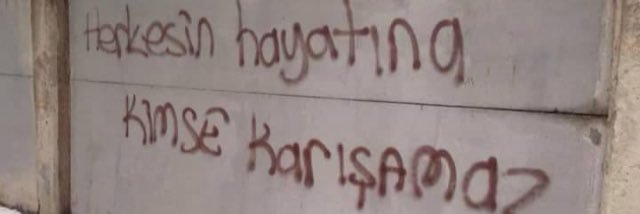 Herkesin hayatına
KimSE KarışAMaz